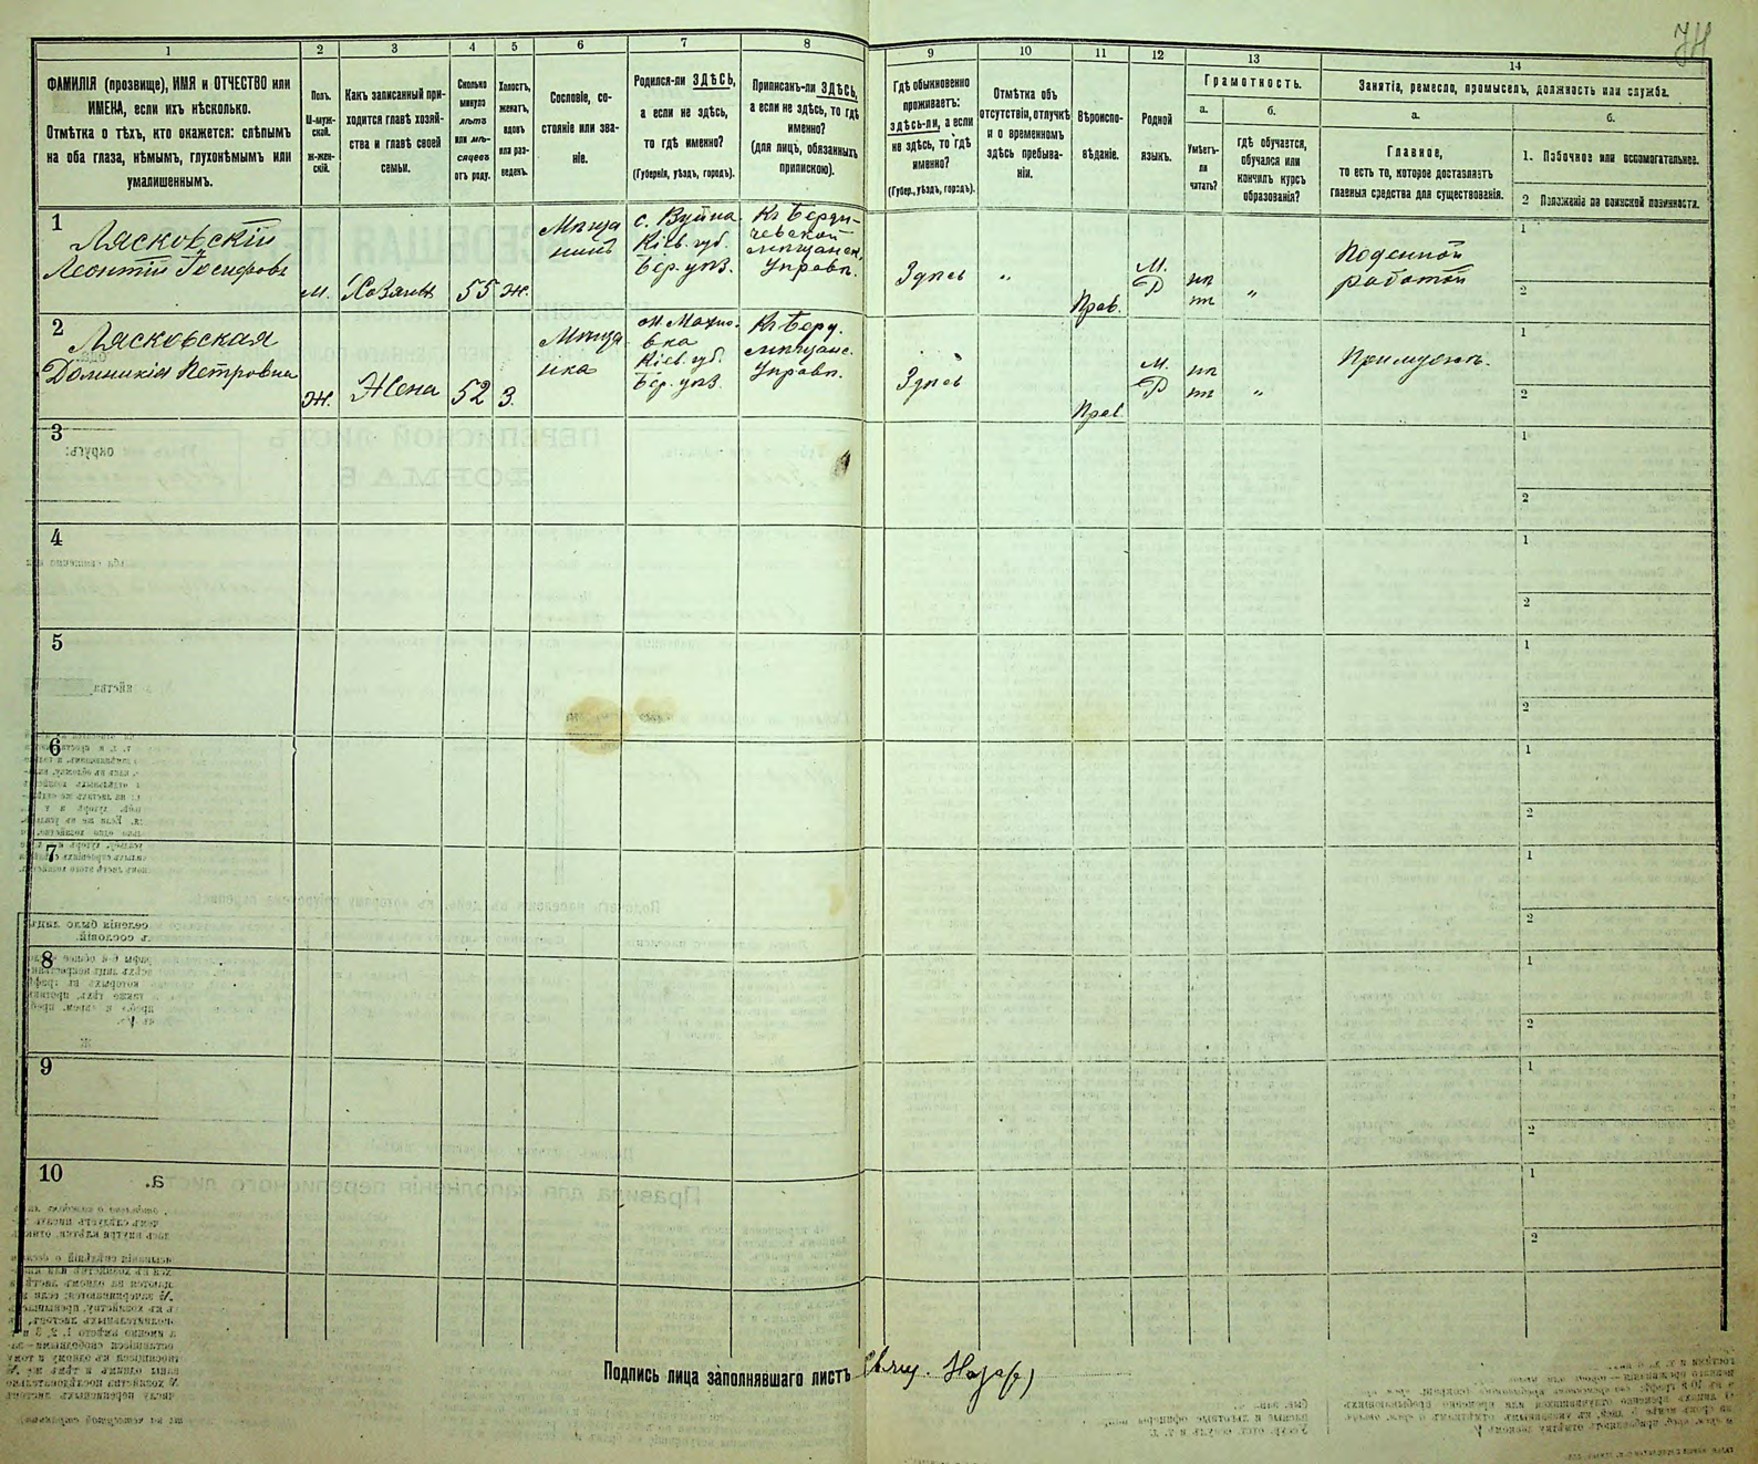 74
1
2
3
4
5
6
7
8
9
10
11
12
13
14
ФАМИЛІЯ (прозвище), ИМЯ и ОТЧЕСТВО или
ИМЕНА, если ихъ нѣсколько.
Отмѣтка о тѣхъ, кто окажется: слѣпымъ
на оба глаза, нѣмымъ, глухонѣмымъ или
умалишеннымъ.
Полъ.
М-муж-
ской.
Ж-жен-
скій.
Какъ записанный при-
ходится главѣ хозяй-
ства и главѣ своей
семьи.
Сколько
минуло
лѣтъ
или мѣ-
сяцевъ
отъ роду.
Холостъ,
женатъ,
вдовъ
или раз-
веденъ.
Сословіе, со-
стояніе или зва-
ніе.
Родился-ли ЗДѢСЬ,
а если не здѣсь,
то гдѣ именно?
(Губернія, уѣздъ, городъ).
Приписанъ-ли ЗДѢСЬ,
а если не здѣсь, то гдѣ
именно?
(для лицъ, обязанныхъ
припискою).
Гдѣ обыкновенно
проживаетъ:
здѣсь-ли, а если
не здѣсь, то гдѣ
именно?
(Губер., уѣздъ, городъ).
Отмѣтка объ
отсутствіи, отлучкѣ
и о временномъ
здѣсь пребыва-
ніи.
Вѣроиспо-
вѣданіе.
Родной
языкъ.
Грамотность.
а.
Умѣетъ-
ли
читать?
б.
Гдѣ обучается,
обучался или
кончилъ курсъ
образованія?
Занятіе, ремесло, промыселъ, должность или служба.
а.
Главное,
то есть то, которое доставляетъ
главныя средства для существованія.
б.
1. Побочное или вспомогательное.
2 Положеніе по воинской повинности.
1
Лясковскій
Леонтій Іосифовъ
м.
Хозяинъ
55
ж.
Мѣща
нинъ
с.
Кіев. губ.
Бер. уѣз.
Къ Берди-
чевской
мѣщанск.
Управѣ.
Здѣсь
"
Прав.
М.
Р
нѣ
тъ
"
Поденной
работой
1
2
2
Лясковская
Домникія Петровна
ж.
Жена
52
З.
Мѣща
нка
м. Махно-
вка
Кіев. губ.
Бер. уѣз.
Къ Берд.
мѣщанс.
Управѣ.
Здѣсь
Прав
М.
Р
нѣ
тъ
"
При мужѣ.
1
2
3
1
2
4
1
2
5
1
2
6
1
2
7
1
2
8
1
2
9
1
2
10
1
2
Подпись лица заполнявшаго листъ